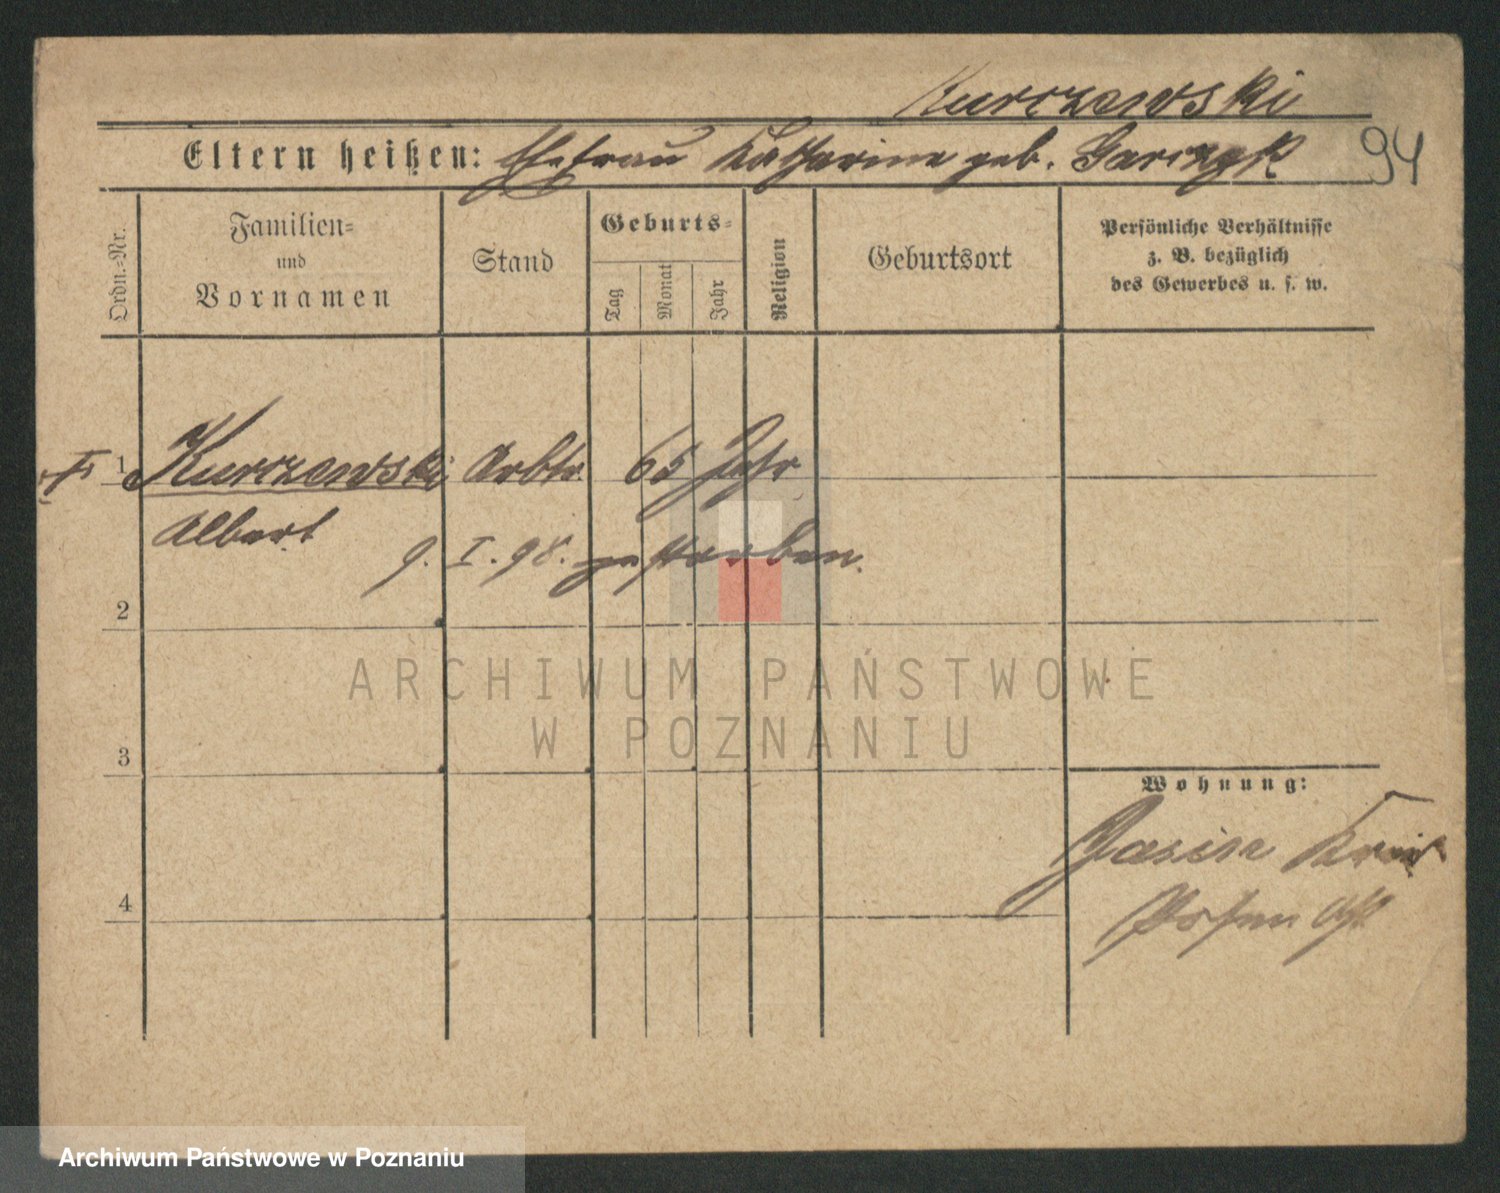 Kurczewski
Eltern heißen: Ehefrau Katharina geb. Garczyk
94
Ordn.-Nr.
Familien-
und
Vornamen
Stand
Geburts-
Tag
Monat
Jahr
Religion
Geburtsort
Persönliche Verhältnisse
z. B. bezüglich
des Gewerbes u. s. w.
1 Kurczewski Arbtr. 65 Jahr
Albert
9. I. 98. gestorben.
2
ARCHIWUM PAŃSTWOWE
W POZNANIU
3
Wohnung:
Jasin
4
Posen
Archiwum Państwowe w Poznaniu